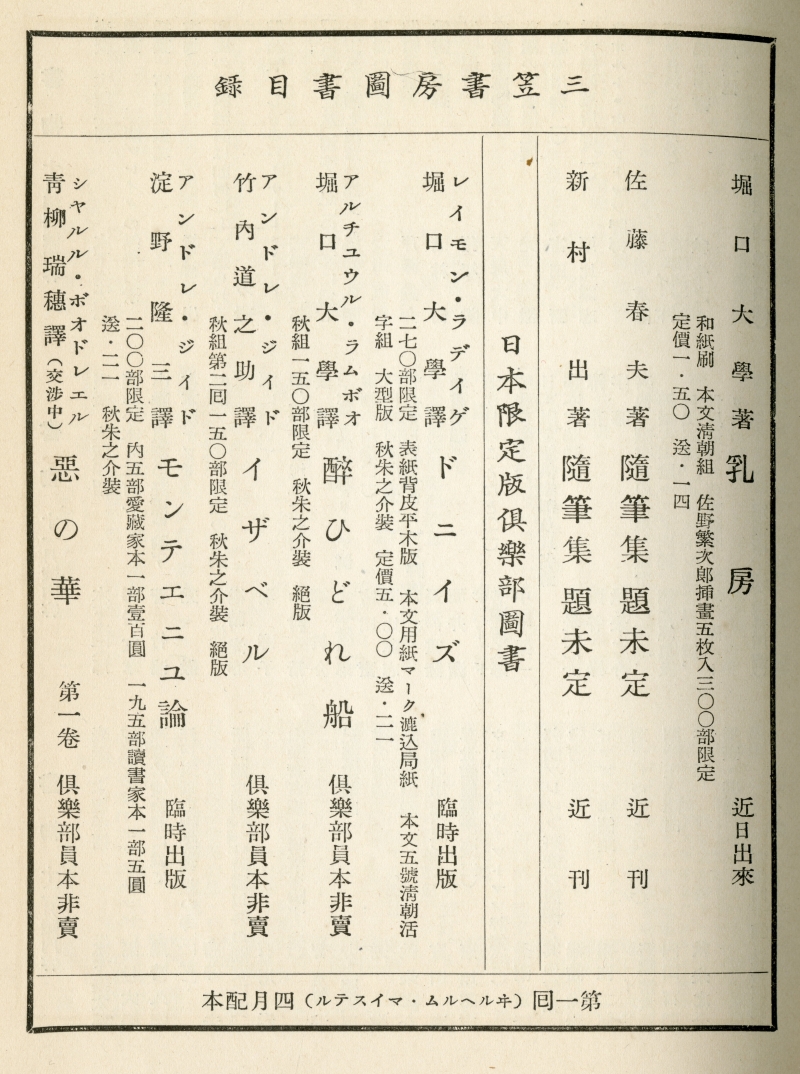 三笠書房圖書目錄
堀口大學著 乳房 近日出來
和紙刷 本文淸朝組 佐野繁次郞揷畫五枚入三〇〇部限定
定價一・五〇 送・一四
佐藤春夫著 隨筆集 題未定 近刊
新村出著 隨筆集 題未定 近刊
日本限定版俱樂部圖書
レイモン・ラデイゲ
堀口大學譯 ドニイズ 臨時出版
二七〇部限定 表紙背皮平木版 本文用紙マーク漉込局紙 本文五號淸朝活
字組 大型版 秋朱之介裝 定價五・〇〇 送・二一
アルチユウル・ラムボオ
堀口大學譯 醉ひどれ船 俱樂部員本非賣
秋組一五〇部限定 秋朱之介裝 絕版
アンドレ・ジイド
竹內道之助譯 イザベル 俱樂部員本非賣
秋組第二囘一五〇部限定 秋朱之介裝 絕版
アンドレ・ジイド
淀野隆三譯 モンテエニユ論 臨時出版
二〇〇部限定 內五部愛藏家本一部壹百圓 一九五部讀書家本一部五圓
送・二一 秋朱之介裝
シヤルル・ボオドレエル
靑柳瑞穗譯(交涉中) 惡の華 第一卷 俱樂部員本非賣
第一囘(ヰルヘルム・マイステル)四月配本